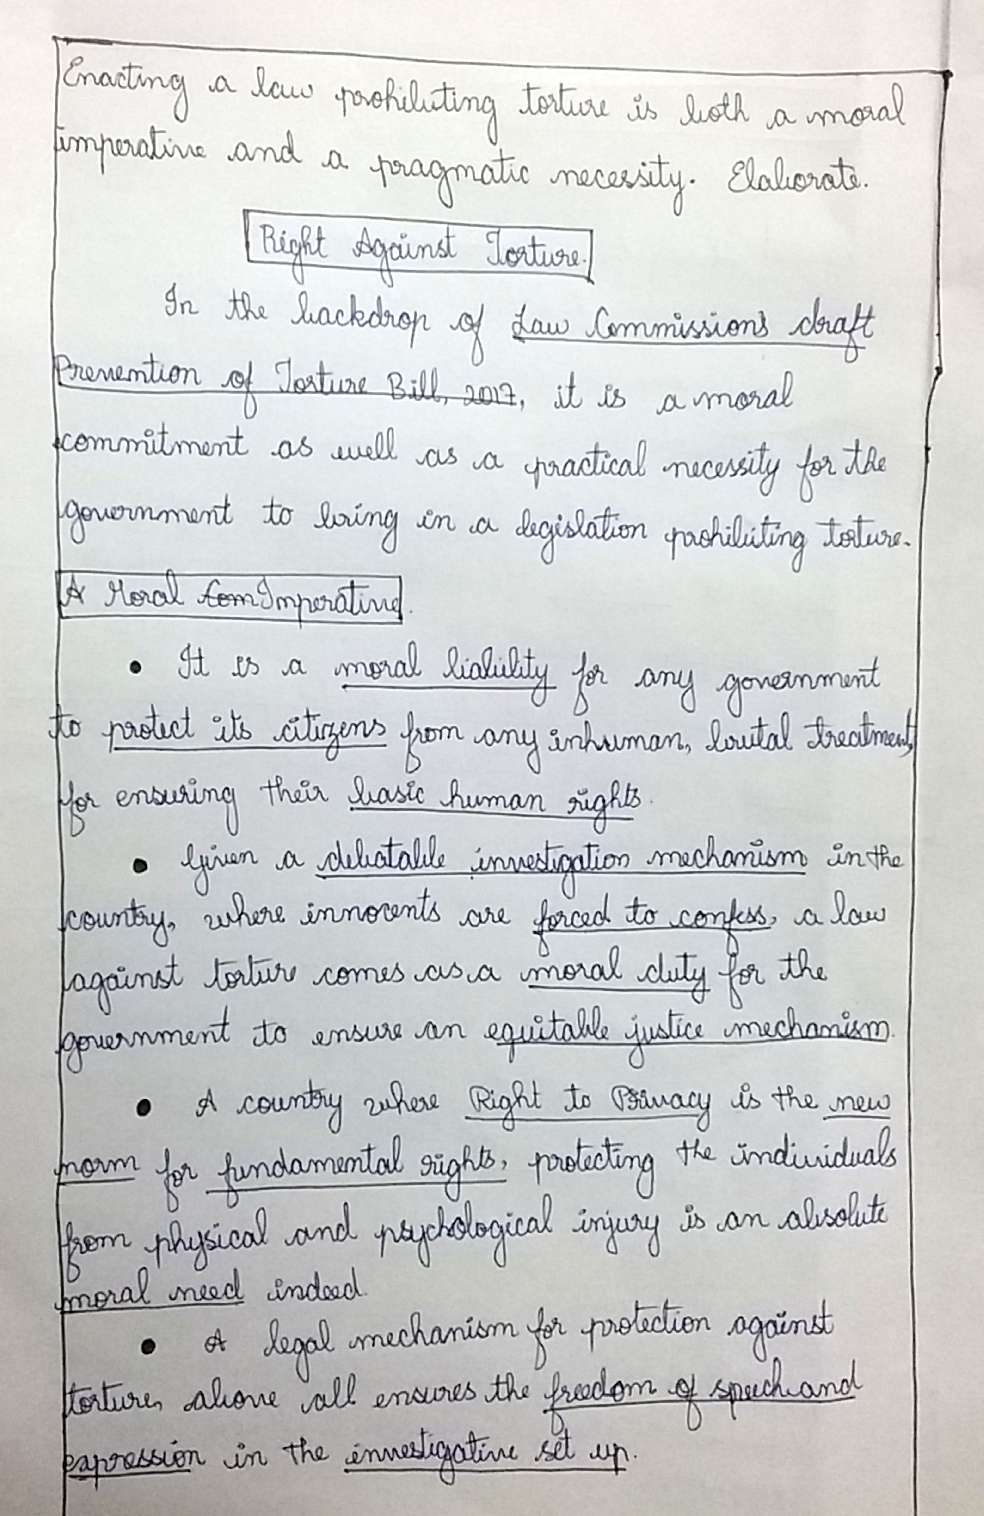 Enacting a law prohibiting torture is both a moral
imperative and a pragmatic necessity. Elaborate.
Right Against Torture.
In the backdrop of Law Commission's draft
Prevention of Torture Bill, 2017, it is a moral
commitment as well as a practical necessity for the
government to bring in a legislation prohibiting torture.
A Moral Com Imperative.
• It is a moral liability for any government
to protect its citizens from any inhuman, brutal treatment,
for ensuring their basic human rights.
• Given a debatable investigation mechanism in the
country, where innocents are forced to confess, a law
against torture comes as a moral duty for the
government to ensure an equitable justice mechanism.
• A country where Right to Privacy is the new
norm for fundamental rights, protecting the individuals
from physical and psychological injury is an absolute
moral need indeed.
• A legal mechanism for protection against
torture, above all ensures the freedom of speech and
expression in the investigative set up.